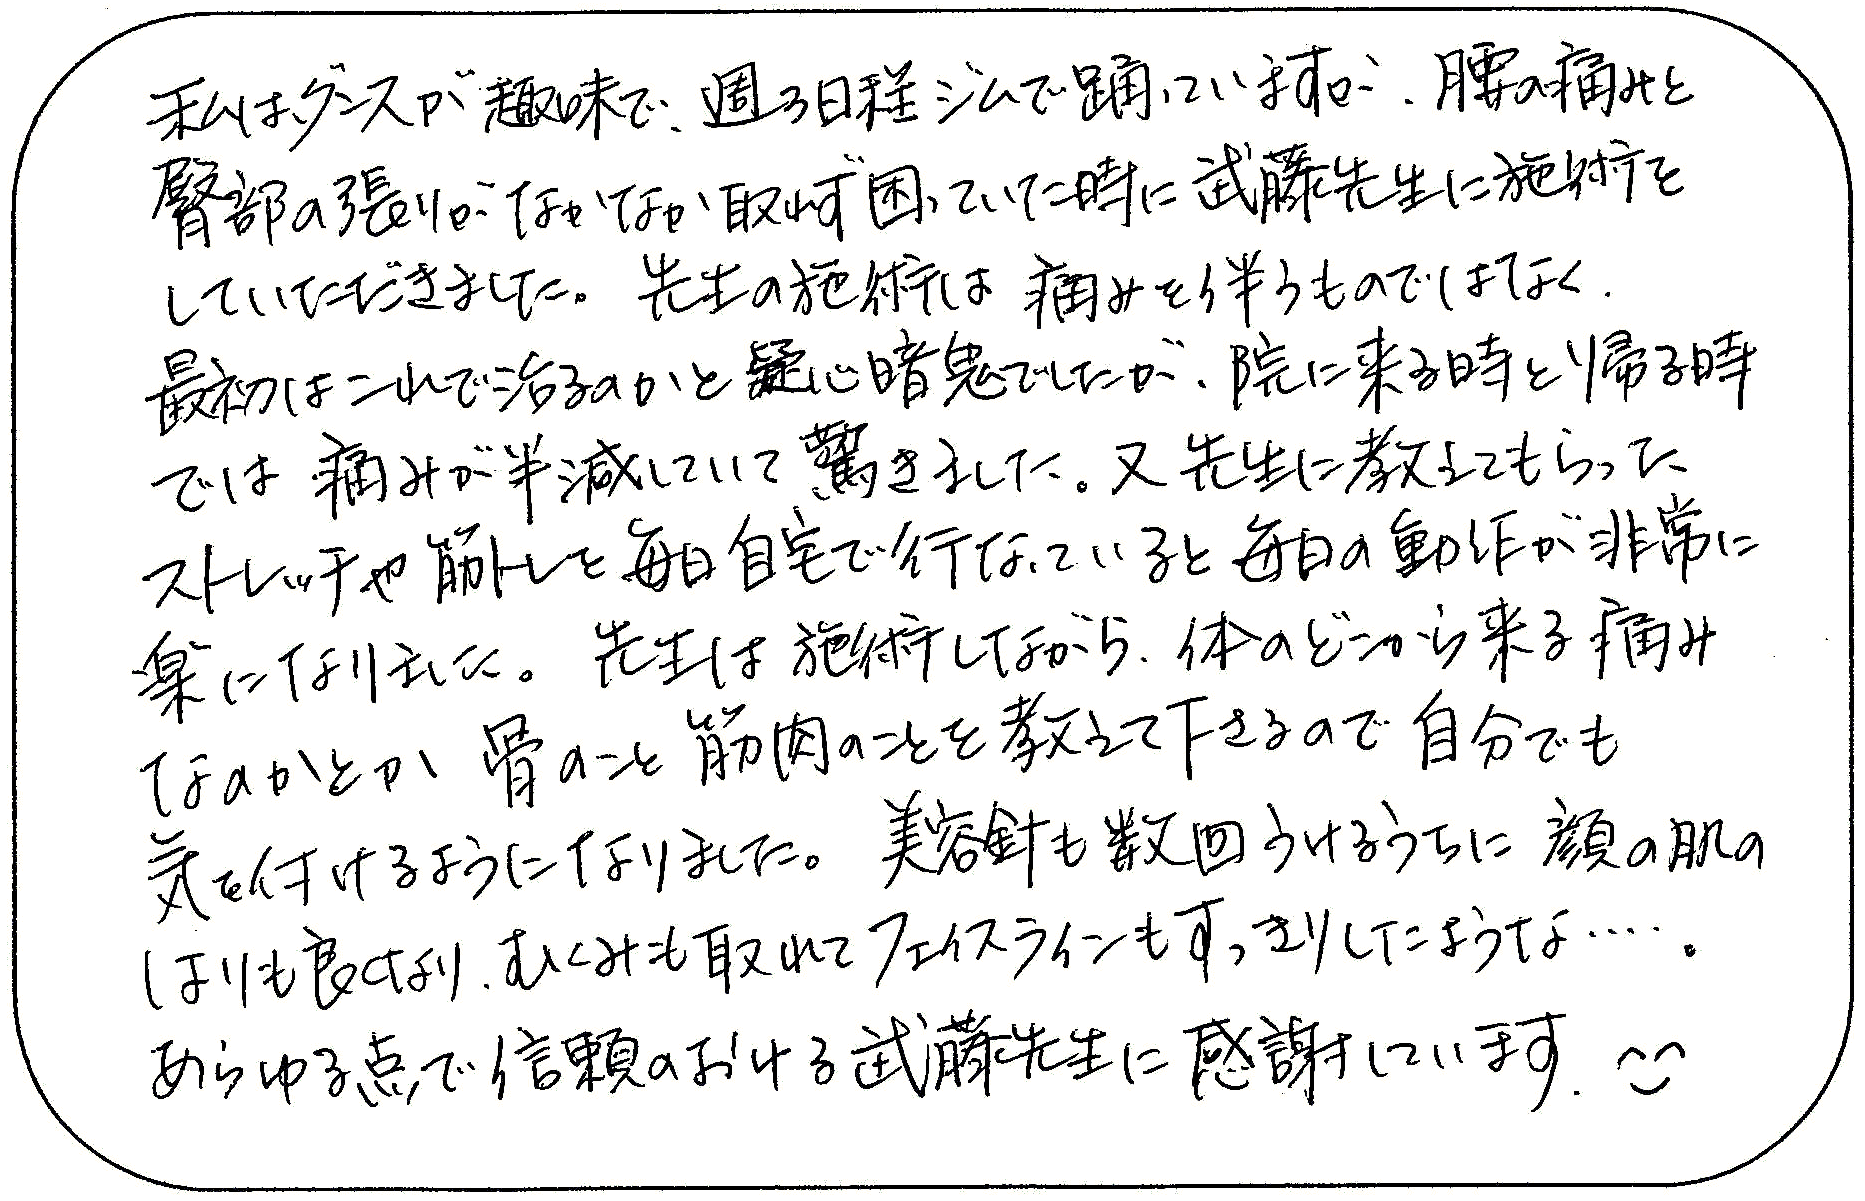 私は、ダンスが趣味で、週3日程ジムで踊っていますが、腰の痛みと
臀部の張りがなかなか取れず困っていた時に武藤先生に施術を
していただきました。先生の施術は痛みを伴うものではなく、
最初はこれで治るのかと疑心暗鬼でしたが、院に来る時と帰る時
では痛みが半減していて驚きました。又先生に教えてもらった
ストレッチや筋トレを毎日自宅で行なっていると毎日の動作が非常に
楽になりました。先生は施術しながら、体のどこから来る痛み
なのかとか骨のこと筋肉のことを教えて下さるので自分でも
気を付けるようになりました。美容針も数回うけるうちに顔の肌の
はりも良くなり、むくみも取れてフェイスラインもすっきりしたような‥‥。
あらゆる点で信頼のおける武藤先生に感謝しています。